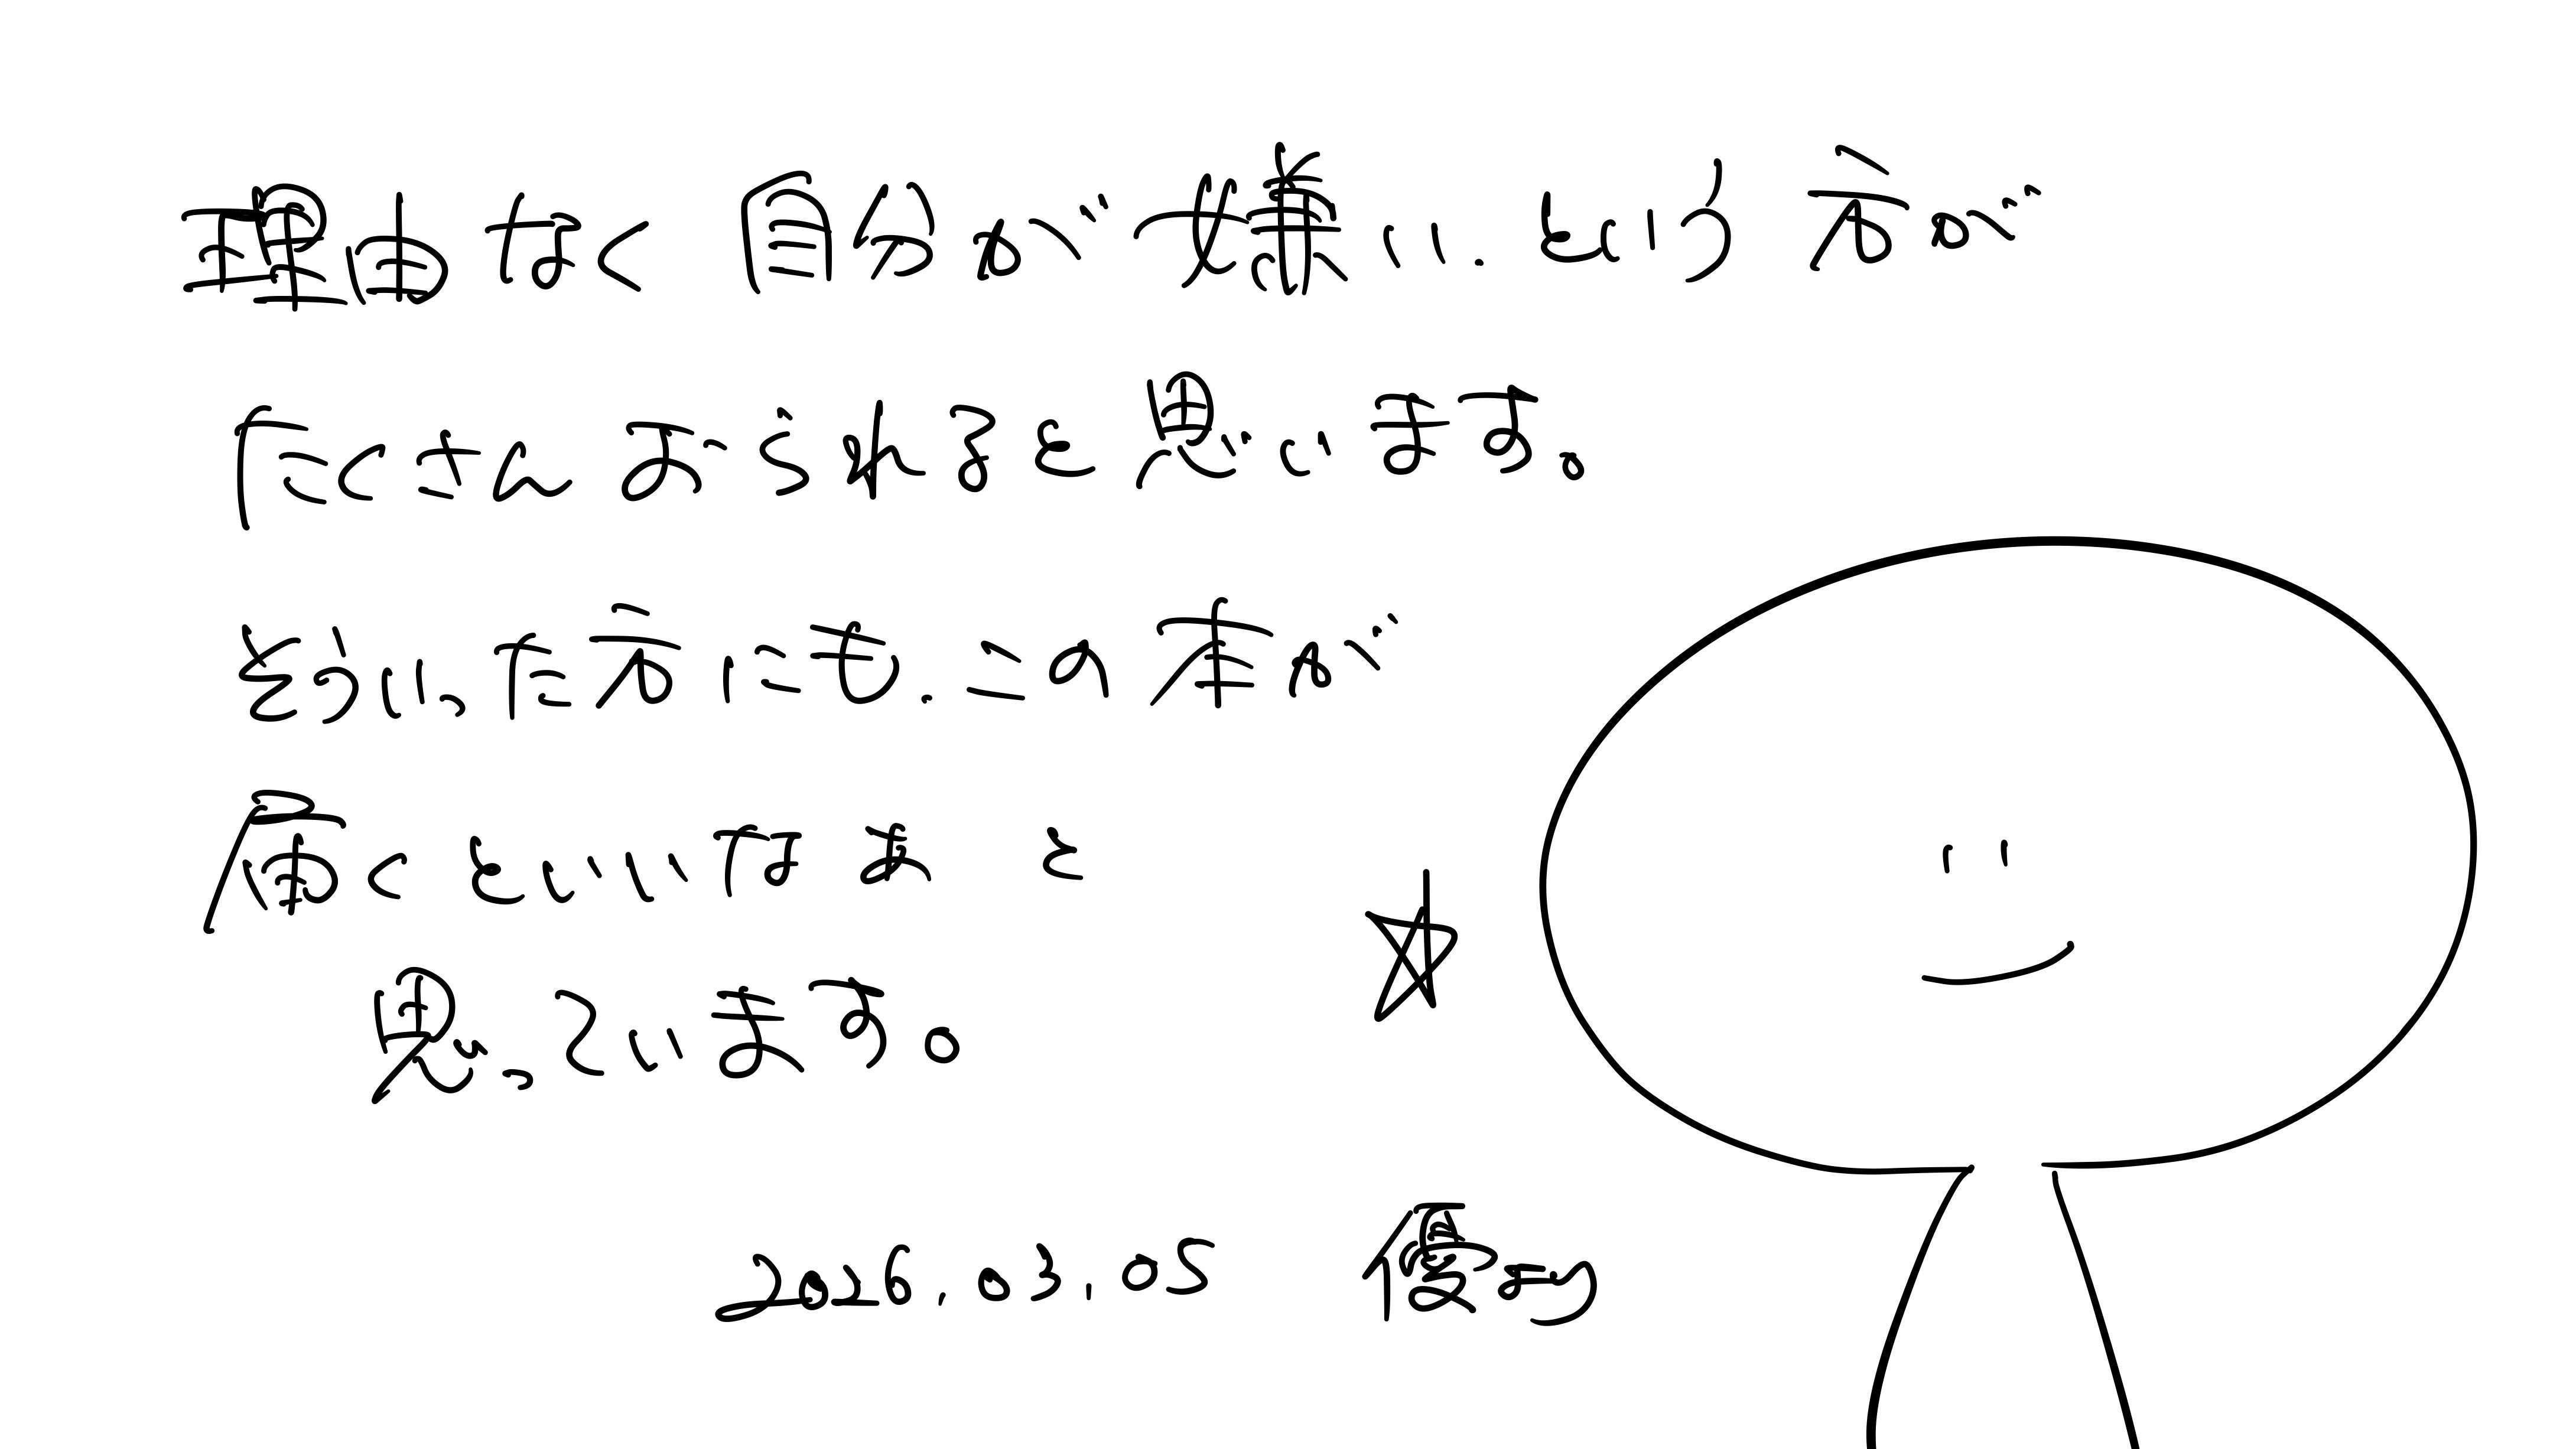 理由なく自分が嫌い.という方が
たくさんおられると思います。
そういった方にも.この本が
届くといいなぁと
思っています。
2026.03.05 優より